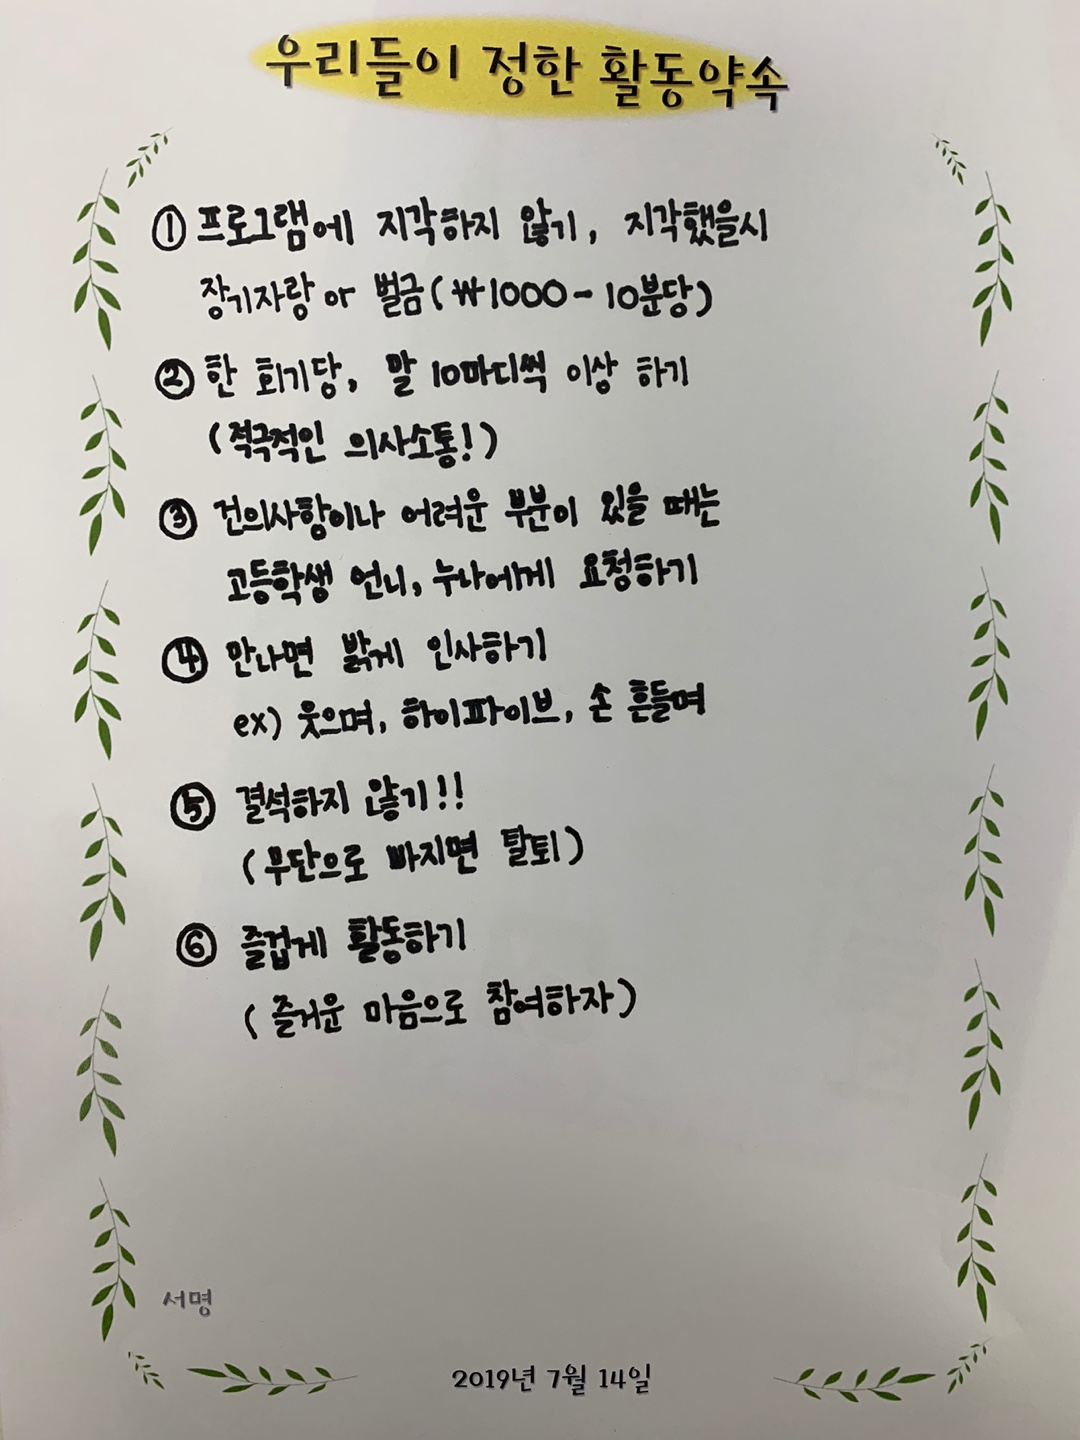 우리들이 정한 활동약속
① 프로그램에 지각하지 않기, 지각했을시
장기자랑 or 벌금(₩1000-10분당)
② 한 회기당, 말 10마디씩 이상 하기
(적극적인 의사소통!)
③ 건의사항이나 어려운 부분이 있을 때는
고등학생 언니, 누나에게 요청하기
④ 만나면 밝게 인사하기
ex) 웃으며, 하이파이브, 손 흔들며
⑤ 결석하지 않기!!
(무단으로 빠지면 탈퇴)
⑥ 즐겁게 활동하기
(즐거운 마음으로 참여하자)
서명
2019년 7월 14일